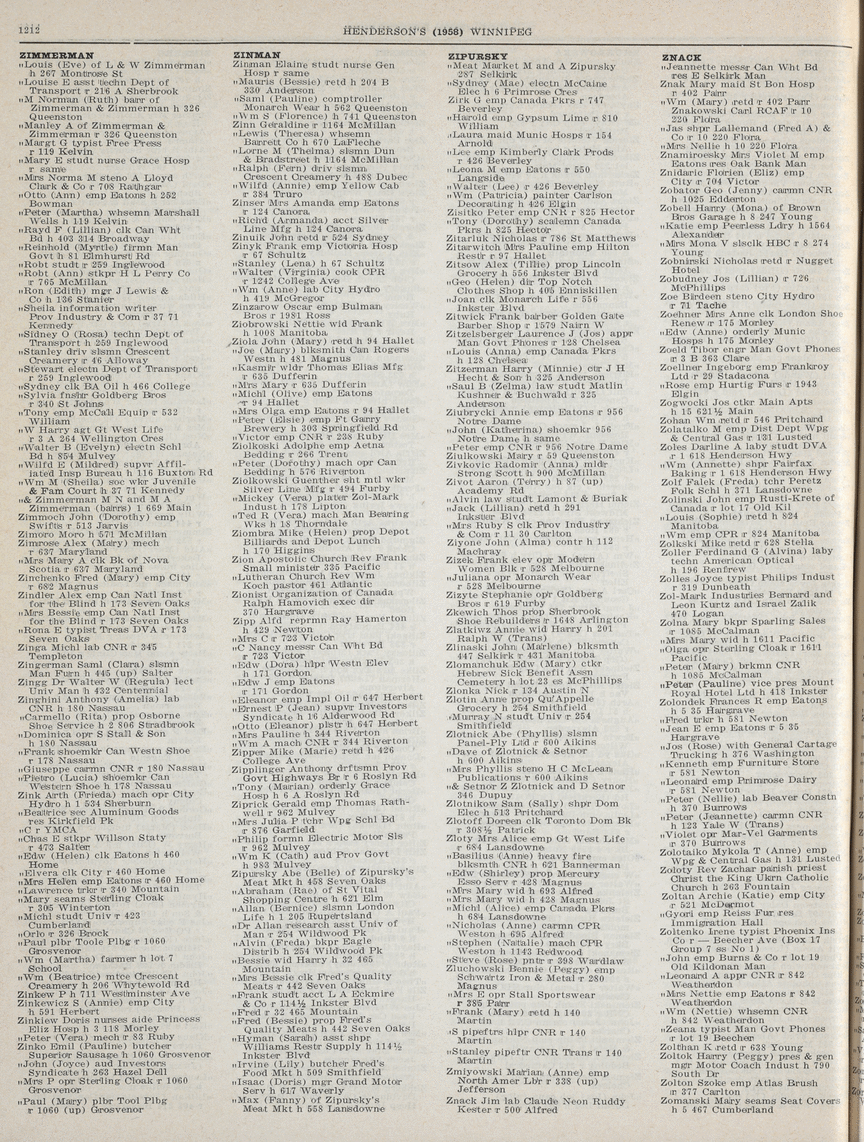 1212
HENDERSON'S (1956) WINNIPEG
ZIMMERMAN
"Louis (Eve) of L & W Zimmerman
h 267 Montrose St
"Louise E asst techn Dept of
Transport r 216 A Sherbrook
"M Norman (Ruth) barr of
Zimmerman & Zimmerman h 326
Queenston
"Manley A of Zimmerman &
Zimmerman r 326 Queenston
"Margt G typist Free Press
r 119 Kelvin
"Mary E studt nurse Grace Hosp
r same
"Mrs Norma M steno A Lloyd
Clark & Co r 708 Rathgar
"Otto (Ann) emp Eatons h 252
Bowman
"Peter (Martha) whsemn Marshall
Wells h 119 Kelvin
"Rayd F (Lillian) clk Can Wht
Bd h 403 314 Broadway
"Reinhold (Myrtle) firmn Man
Govt h 81 Elmhurst Rd
"Robt studt r 259 Inglewood
"Robt (Ann) stkpr H L Perry Co
r 765 McMillan
"Ron (Edith) mgr J Lewis &
Co h 136 Stanier
"Sheila information writer
Prov Industry & Com r 37 71
Kennedy
"Sidney O (Rosa) techn Dept of
Transport h 259 Inglewood
"Stanley driv slsmn Crescent
Creamery r 46 Alloway
"Stewart electn Dept of Transport
r 259 Inglewood
"Sydney clk BA Oil h 466 College
"Sylvia fnshr Goldberg Bros
r 340 St Johns
"Tony emp McCall Equip r 532
William
"W Harry agt Gt West Life
r 3 A 264 Wellington Cres
"Walter B (Evelyn) electn Schl
Bd h 854 Mulvey
"Wilfd E (Mildred) supvr Affil-
iated Insp Bureau h 116 Buxton Rd
"Wm M (Sheila) soc wkr Juvenile
& Fam Court h 37 71 Kennedy
"& Zimmerman M N and M A
Zimmerman (barrs) 1 669 Main
Zimmoch John (Dorothy) emp
Swifts r 513 Jarvis
Zimoro Moro h 571 McMillan
Zimrose Alex (Mary) mech
r 637 Maryland
"Mrs Mary A clk Bk of Nova
Scotia r 637 Maryland
Zinchenko Fred (Mary) emp City
r 682 Magnus
Zindler Alex emp Can Natl Inst
for the Blind h 173 Seven Oaks
"Mrs Bessie emp Can Natl Inst
for the Blind r 173 Seven Oaks
"Rona E typist Treas DVA r 173
Seven Oaks
Zinga Michl lab CNR r 345
Templeton
Zingerman Saml (Clara) slsmn
Man Furn h 445 (up) Salter
Zingg Dr Walter W (Regula) lect
Univ Man h 432 Centennial
Zinghini Anthony (Amelia) lab
CNR h 180 Nassau
"Carmello (Rita) prop Osborne
Shoe Service h 2 806 Stradbrook
"Dominica opr S Stall & Son
h 180 Nassau
"Frank shoemkr Can Westn Shoe
r 178 Nassau
"Giuseppe carmn CNR r 180 Nassau
"Pietro (Lucia) shoemkr Can
Western Shoe h 178 Nassau
Zink Arth (Frieda) mach opr City
Hydro h 1 534 Sherburn
"Beatrice sec Aluminum Goods
res Kirkfield Pk
"C r YMCA
"Chas E stkpr Willson Staty
r 473 Salter
"Edw (Helen) clk Eatons h 460
Home
"Elvera clk City r 460 Home
"Mrs Helen emp Eatons r 460 Home
"Lawrence trkr r 340 Mountain
"Mary seams Sterling Cloak
r 305 Winterton
"Michl studt Univ r 423
Cumberland
"Orlo r 326 Brock
"Paul plbr Toole Plbg r 1060
Grosvenor
"Wm (Martha) farmer h lot 7
School
"Wm (Beatrice) mtce Crescent
Creamery h 206 Whytewold Rd
Zinkew P h 711 Westminster Ave
Zinkewicz S (Annie) emp City
h 591 Herbert
Zinkiew Doris nurses aide Princess
Eliz Hosp h 3 118 Morley
"Peter (Vera) mech r 83 Ruby
Zinko Emil (Pauline) butcher
Superior Sausage h 1060 Grosvenor
"John (Joyce) aud Investors
Syndicate h 263 Hazel Dell
"Mrs P opr Sterling Cloak r 1060
Grosvenor
"Paul (Mary) plbr Tool Plbg
r 1060 (up) Grosvenor
ZINMAN
Zinman Elaine studt nurse Gen
Hosp r same
"Mauris (Bessie) retd h 204 B
330 Anderson
"Saml (Pauline) comptroller
Monarch Wear h 562 Queenston
"Wm S (Florence) h 741 Queenston
Zinn Geraldine r 1164 McMillan
"Lewis (Theresa) whsemn
Barrett Co h 670 LaFleche
"Lorne M (Thelma) slsmn Dun
& Bradstreet h 1164 McMillan
"Ralph (Fern) driv slsmn
Crescent Creamery r 488 Dubec
"Wilfd (Annie) emp Yellow Cab
r 384 Truro
Zinser Mrs Amanda emp Eatons
r 124 Canora
"Richd (Armanda) acct Silver
Line Mfg h 124 Canora
Zinuik John retd r 524 Sydney
Zinyk Frank emp Victoria Hosp
r 67 Schultz
"Stanley (Lena) h 67 Schultz
"Walter (Virginia) cook CPR
r 1242 College Ave
"Wm (Anne) lab City Hydro
h 419 McGregor
Zinzarow Oscar emp Bulman
Bros r 1981 Ross
Ziobrowski Nettie wid Frank
h 1008 Manitoba
Ziola John (Mary) retd h 94 Hallet
"Joe (Mary) blksmith Can Rogers
Westn h 481 Magnus
"Kasmir wldr Thomas Elias Mfg
r 635 Dufferin
"Mrs Mary r 635 Dufferin
"Michl (Olive) emp Eatons
r 94 Hallet
"Mrs Olga emp Eatons r 94 Hallet
"Peter (Elsie) emp Ft Garry
Brewery h 303 Springfield Rd
"Victor emp CNR r 238 Ruby
Ziolkoski Adolphe emp Aetna
Bedding r 266 Trent
"Peter (Dorothy) mach opr Can
Bedding h 576 Riverton
Ziolkowski Guenther sht mtl wkr
Silver Line Mfg r 494 Furby
"Mickey (Vera) plater Zol-Mark
Indust h 178 Lipton
"Ted R (Vera) mach Man Bearing
Wks h 18 Thorndale
Ziombra Mike (Helen) prop Depot
Billiards and Depot Lunch
h 170 Higgins
Zion Apostolic Church Rev Frank
Small minister 335 Pacific
"Lutheran Church Rev Wm
Koch pastor 461 Atlantic
Zionist Organization of Canada
Ralph Hamovich exec dir
370 Hargrave
Zipp Alfd reprmn Ray Hamerton
h 429 Newton
"Mrs C r 723 Victor
"C Nancy messr Can Wht Bd
r 723 Victor
"Edw (Dora) hlpr Westn Elev
h 171 Gordon
"Edw J emp Eatons
r 171 Gordon
"Eleanor emp Impl Oil r 647 Herbert
"Ernest P (Jean) supvr Investors
Syndicate h 16 Alderwood Rd
"Otto (Eleanor) plstr h 647 Herbert
"Mrs Pauline h 344 Riverton
"Wm A mach CNR r 344 Riverton
Zipper Mike (Marie) retd h 426
College Ave
Zipplinger Anthony drftsmn Prov
Govt Highways Br r 6 Roslyn Rd
"Tony (Marian) orderly Grace
Hosp h 6 A Roslyn Rd
Ziprick Gerald emp Thomas Rath-
well r 962 Mulvey
"Mrs Julia P tchr Wpg Schl Bd
r 876 Garfield
"Philip formn Electric Motor Sls
r 962 Mulvey
"Wm K (Cath) aud Prov Govt
h 983 Mulvey
Zipursky Abe (Belle) of Zipursky's
Meat Mkt h 458 Seven Oaks
"Abraham (Rae) of St Vital
Shopping Centre h 621 Elm
"Allan (Bernice) slsmn London
Life h 1 205 Rupertsland
"Dr Allan research asst Univ of
Man r 254 Wildwood Pk
"Alvin (Freda) bkpr Eagle
Distrib h 254 Wildwood Pk
"Bessie wid Harry h 32 465
Mountain
"Mrs Bessie clk Fred's Quality
Meats r 442 Seven Oaks
"Frank studt acct L A Eckmire
& Co r 114½ Inkster Blvd
"Fred r 32 465 Mountain
"Fred (Bessie) prop Fred's
Quality Meats h 442 Seven Oaks
"Hyman (Sarah) asst shpr
Williams Restr Supply h 114½
Inkster Blvd
"Irvine (Lily) butcher Fred's
Food Mkt h 509 Smithfield
"Isaac (Doris) mgr Grand Motor
Serv h 617 Waverly
"Max (Fanny) of Zipursky's
Meat Mkt h 558 Lansdowne
ZIPURSKY
"Meat Market M and A Zipursky
287 Selkirk
"Sydney (Mae) electn McCaine
Elec h 6 Primrose Cres
Zirk G emp Canada Pkrs r 747
Beverley
"Harold emp Gypsum Lime r 810
William
"Laura maid Munic Hosps r 154
Arnold
"Lee emp Kimberly Clark Prods
r 426 Beverley
"Leona M emp Eatons r 550
Langside
"Walter (Lee) r 426 Beverley
"Wm (Patricia) painter Carlson
Decorating h 426 Elgin
Zisitko Peter emp CNR r 825 Hector
"Tony (Dorothy) scalemn Canada
Pkrs h 825 Hector
Zitaruk Nicholas r 786 St Matthews
Zitarwitch Mrs Pauline emp Hilton
Restr r 97 Hallet
Zitsow Alex (Tillie) prop Lincoln
Grocery h 556 Inkster Blvd
"Geo (Helen) dir Top Notch
Clothes Shop h 405 Enniskillen
"Joan clk Monarch Life r 556
Inkster Blvd
Zitwick Frank barber Golden Gate
Barber Shop r 1579 Nairn W
Zitzelsberger Laurence J (Jos) appr
Man Govt Phones r 128 Chelsea
"Louis (Anna) emp Canada Pkrs
h 128 Chelsea
Zitzerman Harry (Minnie) ctr J H
Hecht & Son h 325 Anderson
"Saul B (Zelma) law studt Matlin
Kushner & Buchwald r 325
Anderson
Ziubrycki Annie emp Eatons r 956
Notre Dame
"John (Katherina) shoemkr 956
Notre Dame h same
"Peter emp CNR r 956 Notre Dame
Ziulkowski Mary r 59 Queenston
Zivkovic Radomir (Anna) mldr
Strong Scott h 900 McMillan
Zivot Aaron (Terry) h 87 (up)
Academy Rd
"Alvin law studt Lamont & Buriak
"Jack (Lillian) retd h 291
Inkster Blvd
"Mrs Ruby S clk Prov Industry
& Com r 11 30 Carlton
Ziyone John (Alma) contr h 112
Machray
Zizek Frank elev opr Modern
Women Blk r 528 Melbourne
"Juliana opr Monarch Wear
r 528 Melbourne
Zizyte Stephanie opr Goldberg
Bros r 619 Furby
Zkewich Thos prop Sherbrook
Shoe Rebuilders r 1648 Arlington
Zlatkiwz Annie wid Harry h 201
Ralph W (Trans)
Zlinaski John (Marlene) blksmth
447 Selkirk r 431 Manitoba
Zlomanchuk Edw (Mary) ctkr
Hebrew Sick Benefit Assn
Cemetery h lot 23 es McPhillips
Zlonka Nick r 134 Austin N
Zlotin Anne prop Qu'Appelle
Grocery h 254 Smithfield
"Murray N studt Univ r 254
Smithfield
Zlotnick Abe (Phyllis) slsmn
Panel-Ply Ltd r 600 Aikins
"Dave of Zlotnick & Setnor
h 600 Aikins
"Mrs Phyllis steno H C McLean
Publications r 600 Aikins
"& Setnor Z Zlotnick and D Setnor
346 Dupuy
Zlotnikow Sam (Sally) shpr Dom
Elec h 513 Pritchard
Zlotoff Doreen clk Toronto Dom Bk
r 308½ Patrick
Zloty Mrs Alice emp Gt West Life
r 684 Lansdowne
"Basilius (Anne) heavy fire
blksmth CNR h 621 Bannerman
"Edw (Shirley) prop Mercury
Esso Serv r 428 Magnus
"Mrs Mary wid h 693 Alfred
"Mrs Mary wid h 428 Magnus
"Michl (Alice) emp Canada Pkrs
h 684 Lansdowne
"Nicholas (Anne) carmn CPR
Weston h 695 Alfred
"Stephen (Natalie) mach CPR
Weston h 1143 Redwood
"Steve (Rose) pntr r 398 Wardlaw
Zluchowski Bennie (Peggy) emp
Schwartz Iron & Metal r 280
Magnus
"Mrs E opr Stall Sportswear
r 385 Parr
"Frank (Mary) retd h 140
Martin
"S pipeftrs hlpr CNR r 140
Martin
"Stanley pipeftr CNR Trans r 140
Martin
Zmiyowski Marian (Anne) emp
North Amer Lbr r 338 (up)
Jefferson
Znack Jim lab Claude Neon Ruddy
Kester r 500 Alfred
ZNACK
"Jeannette messr Can Wht Bd
res E Selkirk Man
Znak Mary maid St Bon Hosp
r 402 Parr
"Wm (Mary) retd r 402 Parr
Znakowski Carl RCAF r 10
220 Flora
"Jas shpr Lallemand (Fred A) &
Co r 10 220 Flora
"Mrs Nellie h 10 220 Flora
Znamirosky Mrs Violet M emp
Eatons res Oak Bank Man
Znidaric Florien (Eliz) emp
City r 704 Victor
Zobator Geo (Jenny) carmn CNR
h 1025 Edderton
Zobell Harry (Mona) of Brown
Bros Garage h 8 247 Young
"Katie emp Peerless Ldry h 1564
Alexander
"Mrs Mona V slsclk HBC r 8 274
Young
Zobniriski Nicholas retd r Nugget
Hotel
Zobudney Jos (Lillian) r 726
McPhillips
Zoe Birdeen steno City Hydro
r 71 Tache
Zoehner Mrs Anne clk London Shoe
Renew r 175 Morley
"Edw (Anne) orderly Munic
Hosps h 175 Morley
Zoeld Tibor engr Man Govt Phones
r 3 B 363 Clare
Zoellner Ingeborg emp Frankroy
Ltd r 29 Stadacona
"Rose emp Hurtig Furs r 1943
Elgin
Zogwocki Jos ctkr Main Apts
h 15 621½ Main
Zohan Wm retd r 546 Pritchard
Zolatalko M emp Dist Dept Wpg
& Central Gas r 131 Lusted
Zoles Darline A laby studt DVA
r 1 618 Henderson Hwy
"Wm (Annette) shpr Fairfax
Baking r 1 618 Henderson Hwy
Zolf Falek (Freda) tchr Peretz
Folk Schl h 371 Lansdowne
Zolinski John emp Rusti-Krete of
Canada r lot 17 Old Kil
"Louis (Sophie) retd h 824
Manitoba
"Wm emp CPR r 824 Manitoba
Zolkski Mike retd r 628 Stella
Zoller Ferdinand G (Alvina) laby
techn American Optical
h 196 Renfrew
Zolles Joyce typist Philips Indust
r 319 Dunbeath
Zol-Mark Industries Bernard and
Leon Kurtz and Israel Zalik
470 Logan
Zolna Mary bkpr Sparling Sales
r 1085 McCalman
"Mrs Mary wid h 1611 Pacific
"Olga opr Sterling Cloak r 1611
Pacific
"Peter (Mary) brkmn CNR
h 1085 McCalman
"Peter (Pauline) vice pres Mount
Royal Hotel Ltd h 418 Inkster
Zolondek Frances R emp Eatons
h 5 35 Hargrave
"Fred trkr h 581 Newton
"Jean E emp Eatons r 5 35
Hargrave
"Jos (Rose) with General Cartage
Trucking h 376 Washington
"Kenneth emp Furniture Store
r 581 Newton
"Leonard emp Primrose Dairy
r 581 Newton
"Peter (Nellie) lab Beaver Constn
h 370 Burrows
"Peter (Jeannette) carmn CNR
h 123 Yale W (Trans)
"Violet opr Mar-Vel Garments
r 370 Burrows
Zolotaiko Mykola T (Anne) emp
Wpg & Central Gas h 131 Lusted
Zoloty Rev Zachary parish priest
Christ the King Ukrn Catholic
Church h 263 Fountain
Zoltan Archie (Katie) emp City
r 521 McDermot
"Gyori emp Reiss Fur res
Immigration Hall
Zoltenko Irene typist Phoenix Ins
Co r — Beecher Ave (Box 17
Group 7 ss No 1)
"John emp Burns & Co r lot 19
Old Kildonan Man
"Leonard A appr CNR r 842
Weatherdon
"Mrs Nettie emp Eatons r 842
Weatherdon
"Wm (Nettie) whsemn CNR
h 842 Weatherdon
"Zeana typist Man Govt Phones
r lot 19 Beecher
Zolthan K retd r 638 Young
Zoltok Harry (Peggy) pres & gen
mgr Motor Coach Indust h 790
South Dr
Zolton Szoke emp Atlas Brush
r 377 Carlton
Zomanski Mary seams Seat Covers
h 5 467 Cumberland